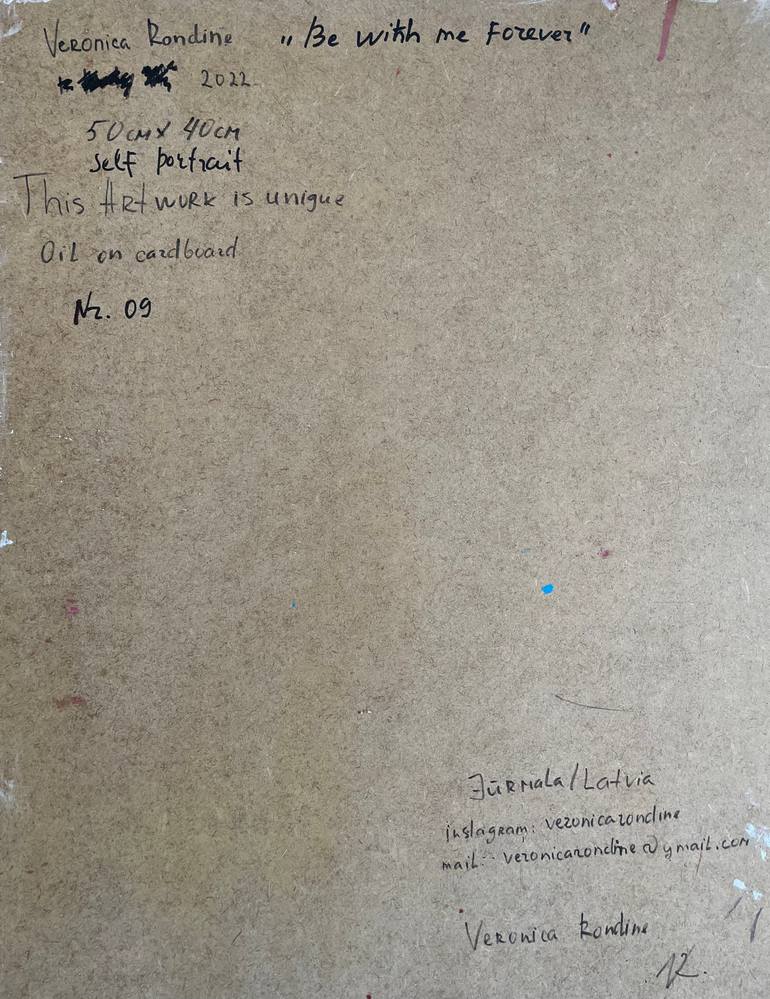 Veronica Rondine „Be with me Forever"
2022
50cm x 40cm
self portrait
This Artwork is unique
Oil on cardboard
Nr. 09
Jūrmala/Latvia
instagram: veronicarondine
mail: veronicarondine@gmail.com
Veronica Rondine